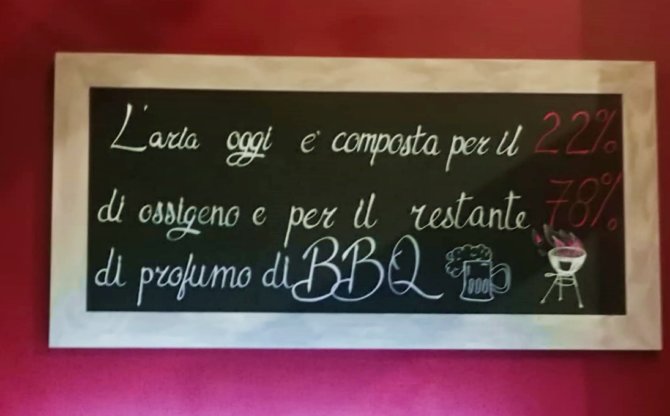 L'aria oggi e' composta per il 22%
di ossigeno e per il restante 78%
di profumo di BBQ